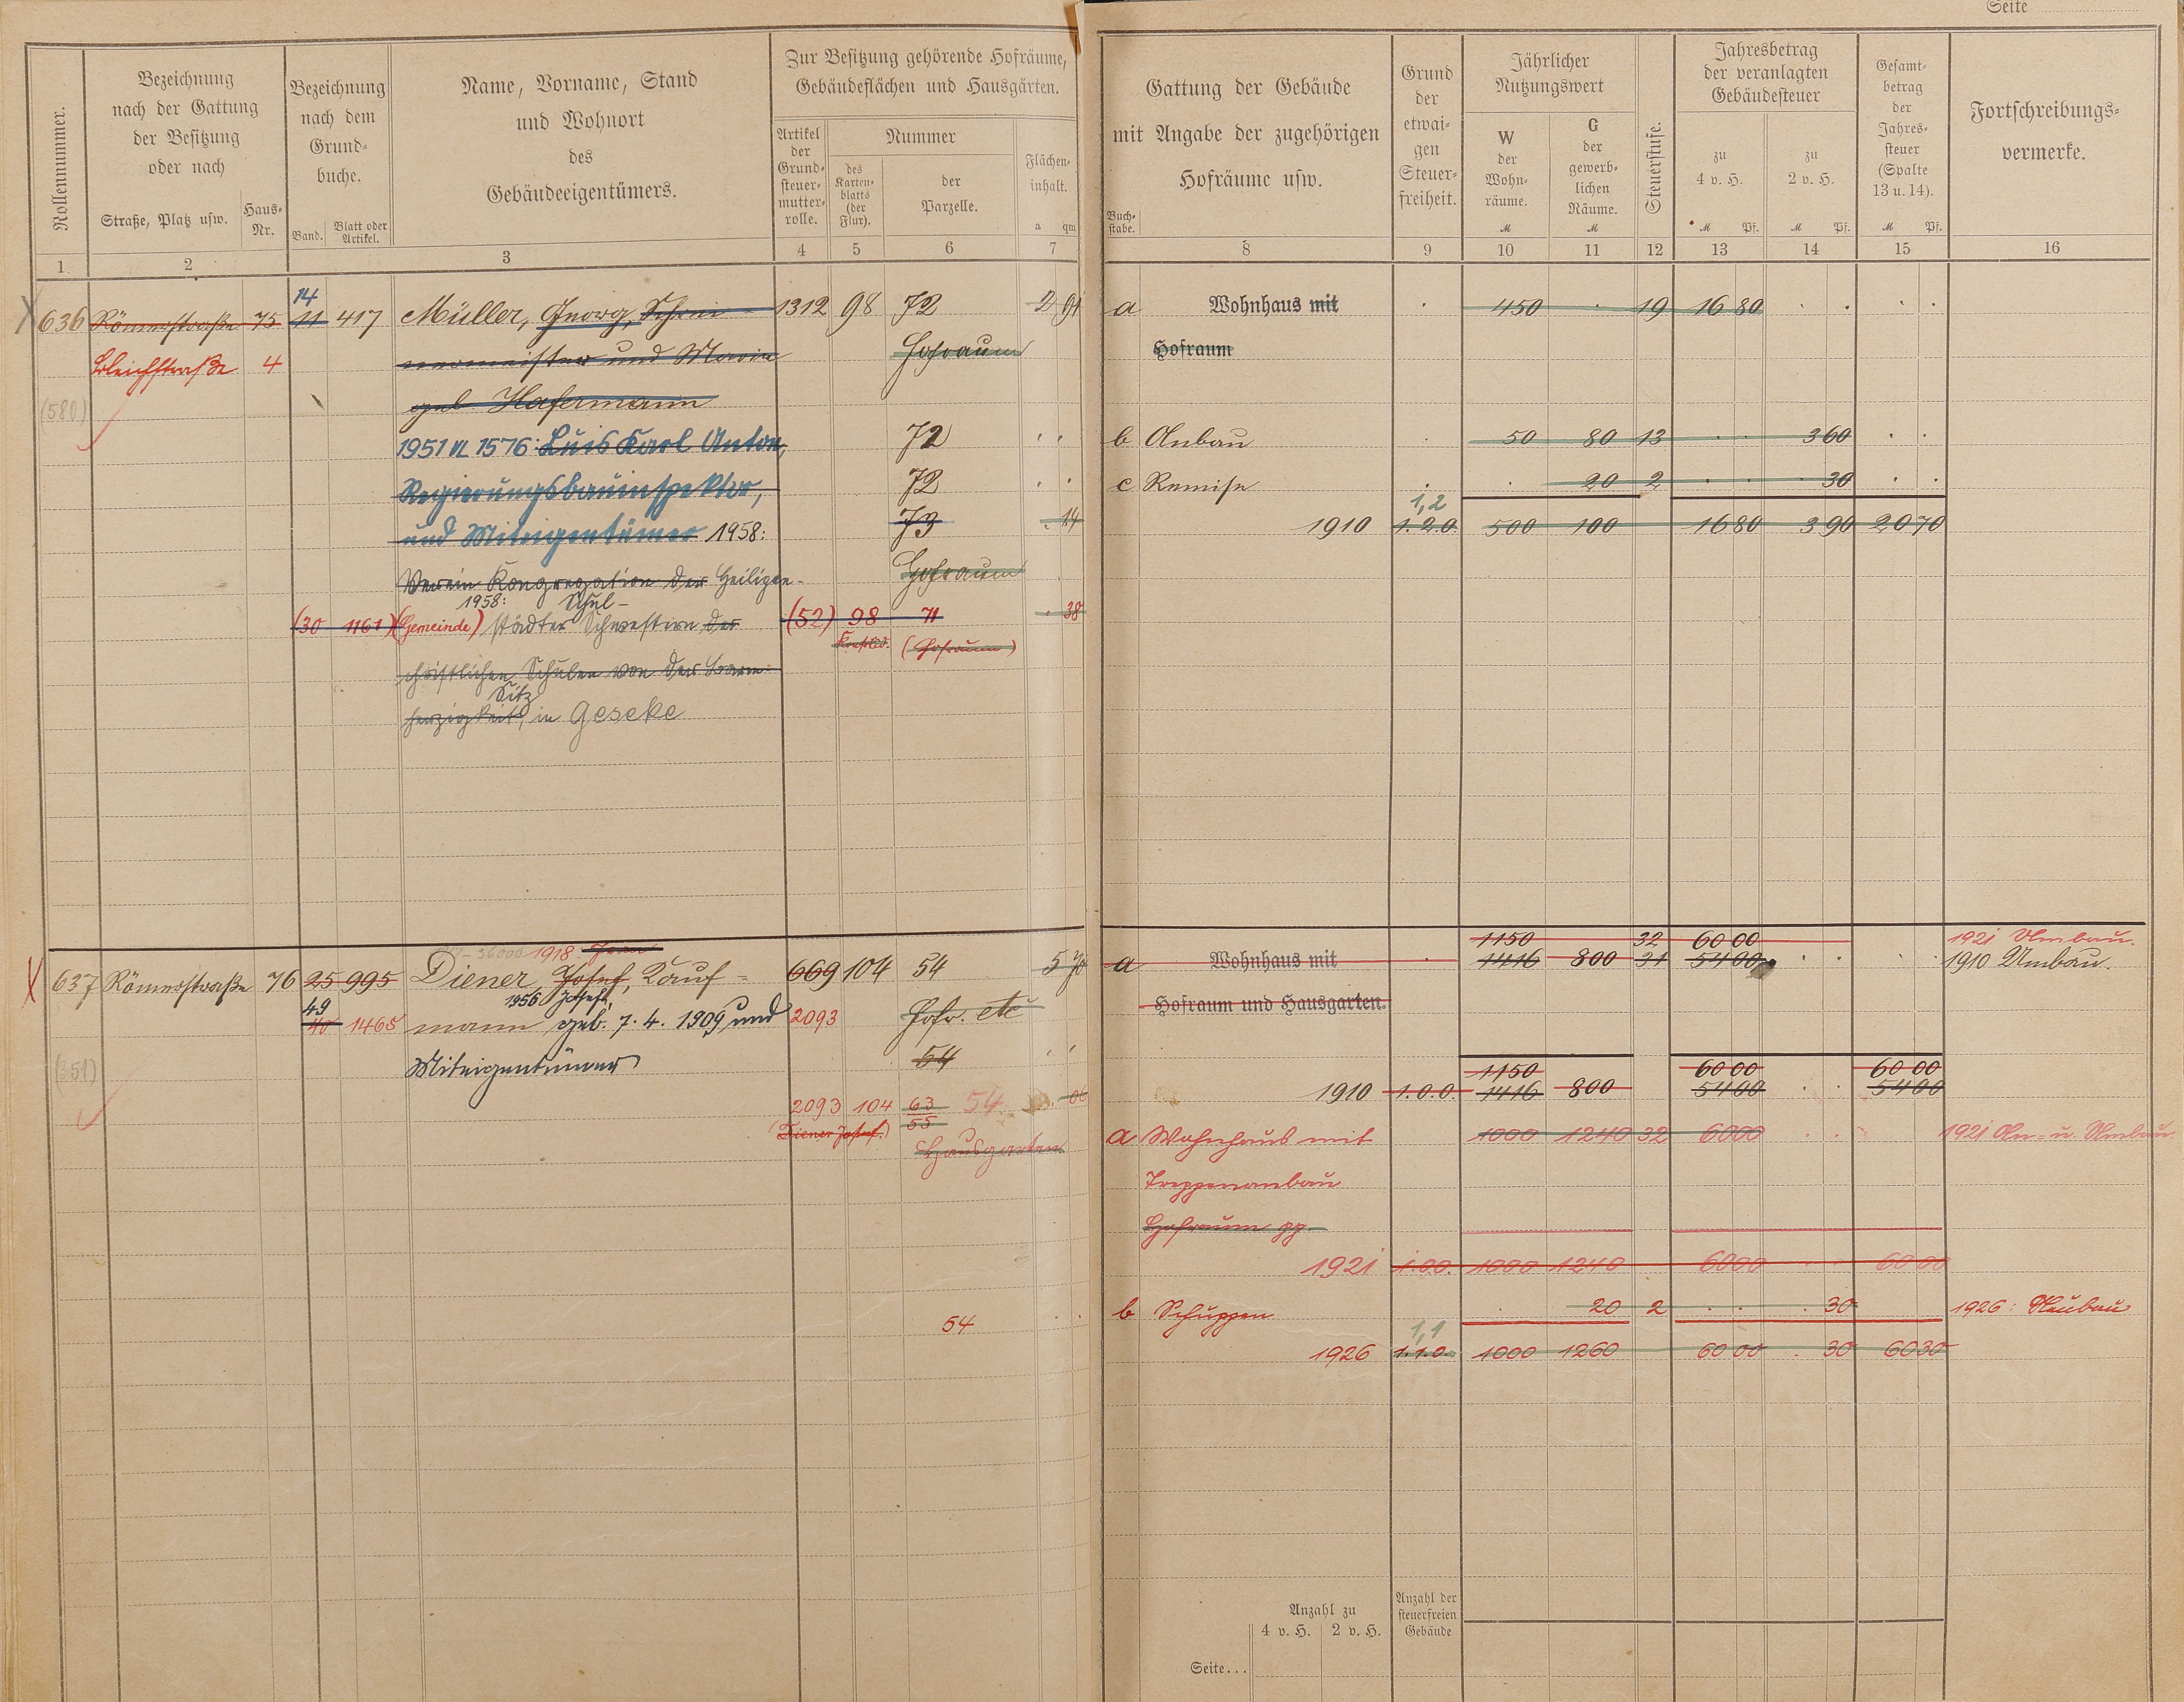 Seite
Rollennummer.
Bezeichnung
nach der Gattung
der Besitzung
oder nach
Straße, Platz usw.
Haus-
Nr.
Bezeichnung
nach dem
Grund-
buche.
Band.
Blatt oder
Artikel.
Name, Vorname, Stand
und Wohnort
des
Gebäudeeigentümers.
Zur Besitzung gehörende Hofräume,
Gebäudeflächen und Hausgärten.
Artikel
der
Grund-
steuer-
mutter-
rolle.
Nummer
des
Karten-
blatts
(der
Flur).
der
Parzelle.
Flächen-
inhalt.
a qm
Gattung der Gebäude
mit Angabe der zugehörigen
Hofräume usw.
Buch-
stabe.
Grund
der
etwai-
gen
Steuer-
freiheit.
Jährlicher
Nutzungswert
W
der
Wohn-
räume.
M
G
der
gewerb-
lichen
Räume.
M
Steuerstufe.
Jahresbetrag
der veranlagten
Gebäudesteuer
zu
4 v. H.
M Pf.
zu
2 v. H.
M Pf.
Gesamt-
betrag
der
Jahres-
steuer
(Spalte
13 u. 14).
M Pf.
Fortschreibungs-
vermerke.
1 2 3 4 5 6 7 8 9 10 11 12 13 14 15 16
14
636 Römerstraße 75 11 417 Müller, Georg, Schrei- 1312 98 72 2 91 a Wohnhaus mit 450 19 16 80
Bleichstraße 4 nermeister und Maria Hofraum Hofraum
(580) geb. Hafermann
1951 VL 1576: Luis Karl Anton, 72 b Anbau 50 80 13 3 60
Regierungsbauinspektor, 72 c Remise 20 2 30
1,2
und Miteigentümer 1958: 73 14 1910 1.2.0. 500 100 16 80 3 90 20 70
Verein Kongregation der Heiligen- Hofraum
1958: Schul-
(30 1161) (Gemeinde) städter Schwestern der (52) 98 71 38
(Hofraum)
christlichen Schulen von der Barm-
Sitz
herzigkeit, in Geseke
36000 1918: 1150 32 60 00 1921 Umbau.
637 Römerstraße 76 25 995 Diener, Josef, Kauf- 669 104 54 5 70 a Wohnhaus mit 1416 800 31 54 00 1910 Umbau.
49 1956 Josef,
40 1465 mann geb. 7. 4. 1909 und 2093 Hofr. etc Hofraum und Hausgarten.
(351) Miteigentümer 54
1150 60 00 60 00
1910 1.0.0. 1416 800 54 00 54 00
2093 104 63 54 06
55
(Diener Josef.)
Hausgarten
a Wohnhaus mit 1000 1240 32 60 00 1921 An- u. Umbau
Treppenanbau
Hofraum pp.
1921 1.0.0. 1000 1240 60 00 60 00
54 b Schuppen 20 2 30 1926: Neubau
1,1
1926 1.1.0. 1000 1260 60 00 30 60 30
Anzahl zu
4 v. H. 2 v. H.
Anzahl der
steuerfreien
Gebäude
Seite...